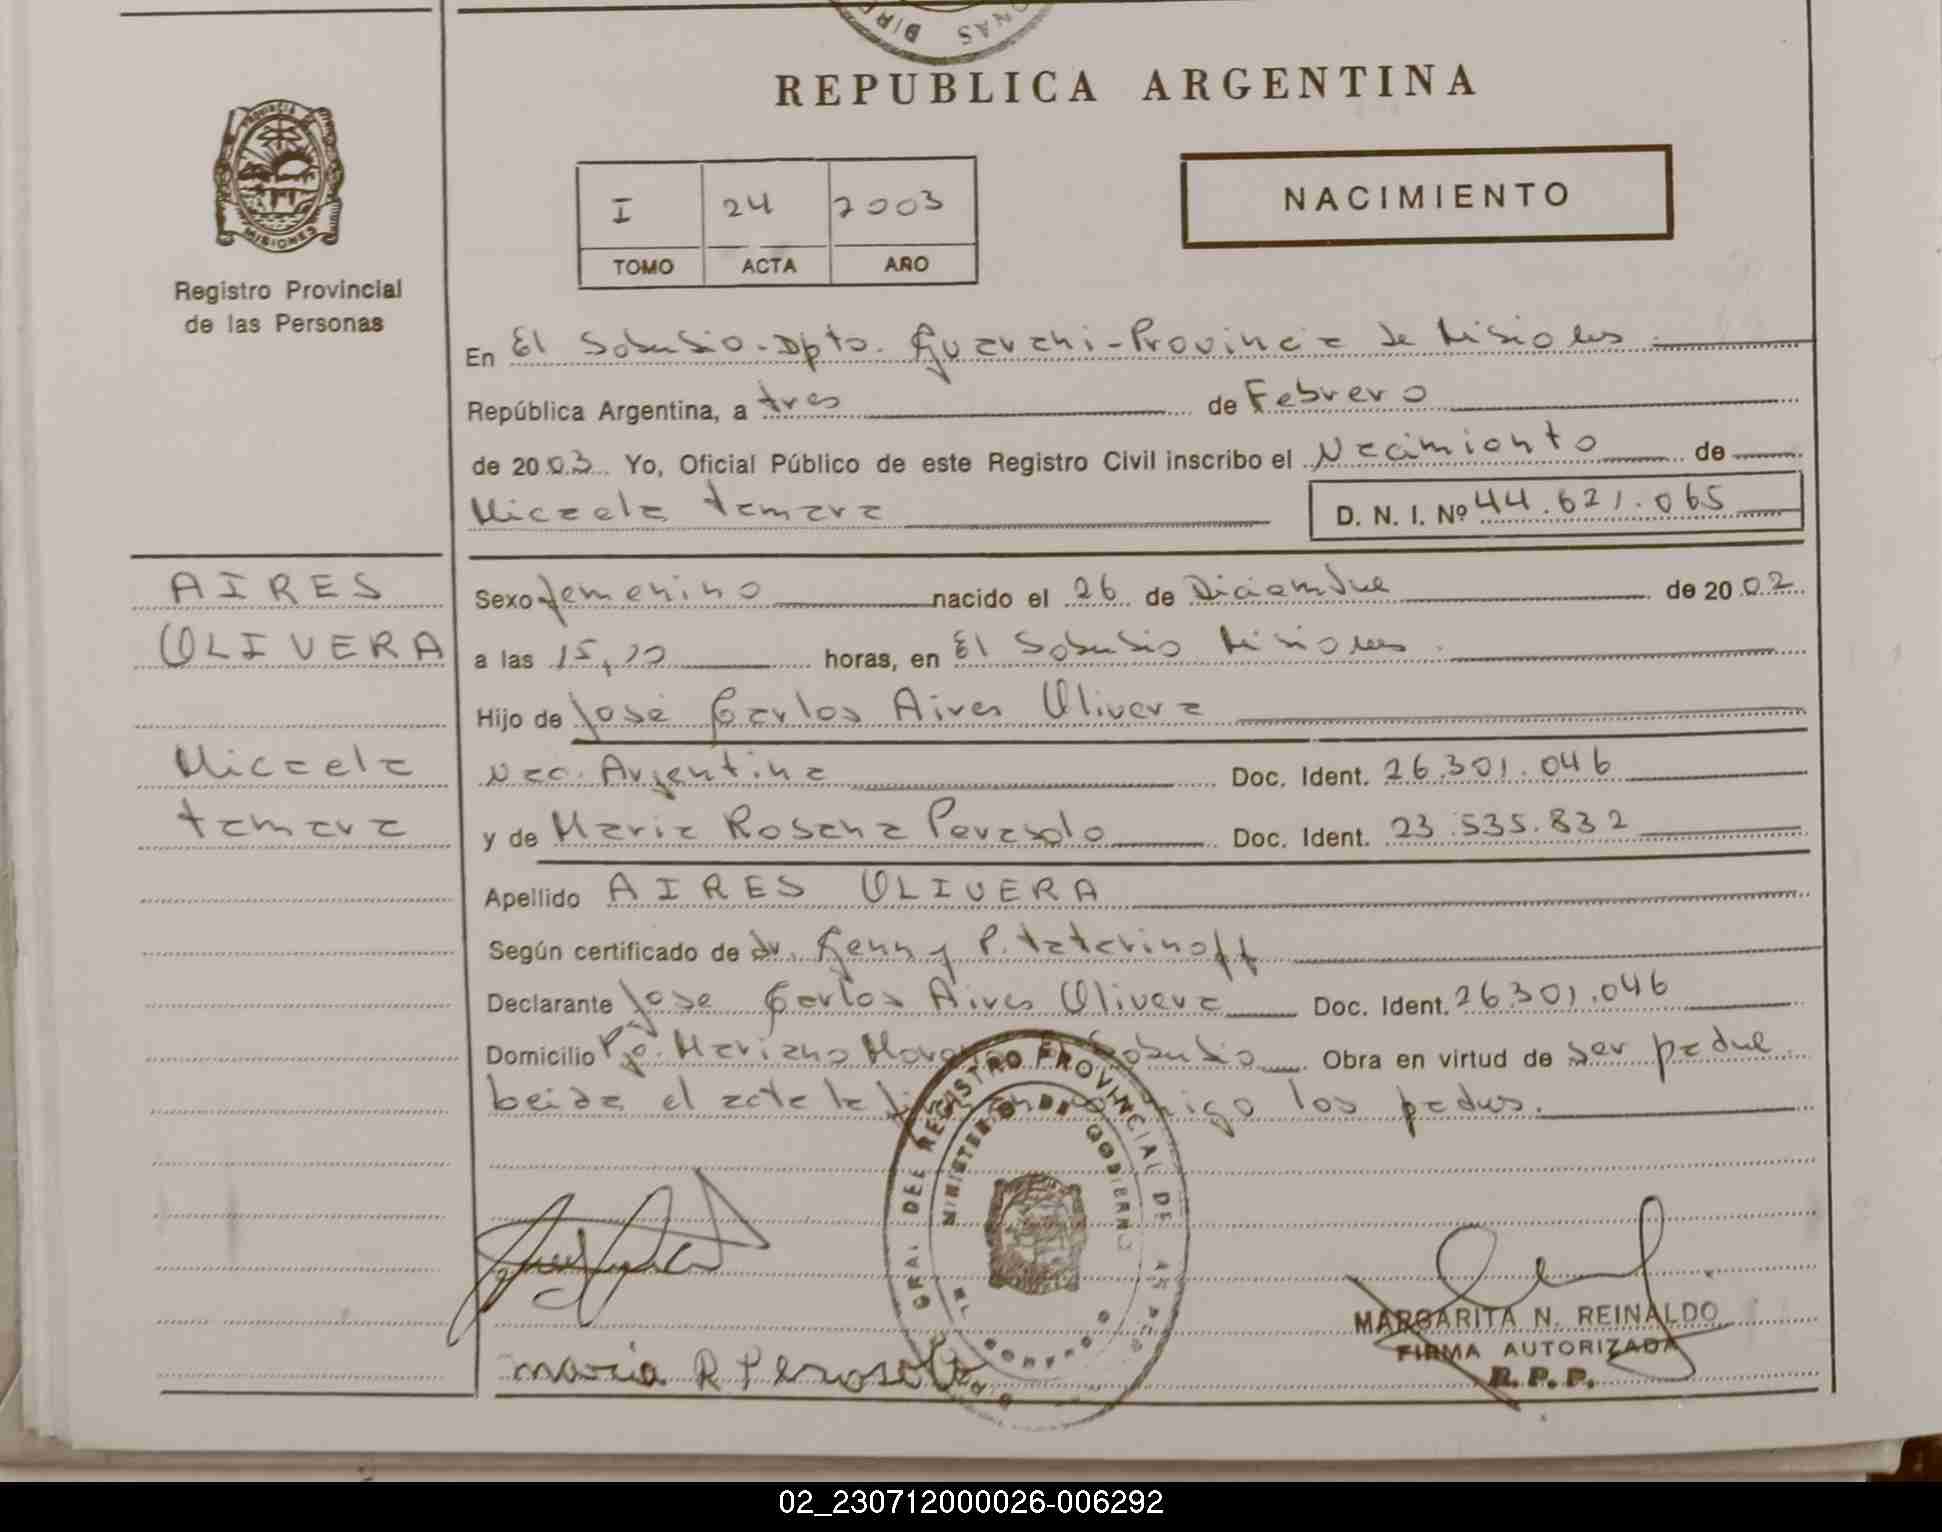 REPUBLICA ARGENTINA
PROVINCIA
MISIONES
Registro Provincial
de las Personas
I 24 2003
TOMO ACTA AÑO
NACIMIENTO
En El Soberbio - Dpto. Guarani - Provincia de Misiones
República Argentina, a tres de Febrero
de 2003 Yo, Oficial Público de este Registro Civil inscribo el Nacimiento de
Micaela tamara D. N. I. Nº 44.621.065
AIRES
OLIVERA
Micaela
tamara
Sexo femenino nacido el 26 de Diciembre de 2002
a las horas, en El Soberbio Misiones
Hijo de José Carlos Aires Olivera
Nac. Argentina Doc. Ident. 26.301.046
y de Maria Rosana Doc. Ident. 23.535.832
Apellido AIRES OLIVERA
Según certificado de dr. Genny P. tatarinoff
Declarante Jose Carlos Aires Olivera Doc. Ident. 26301.046
Domicilio Mariano Soberbio Obra en virtud de ser padre
leida el acta la los padres.
REGISTRO PROVINCIAL DE
MINISTERIO DE GOBIERNO
maria R
MARGARITA N. REINALDO
FIRMA AUTORIZADA
R. P. P.
02_230712000026-006292